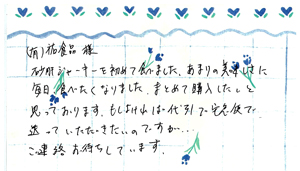 (有)祐食品 様
砂肝ジャーキーを初めて食べました。あまりの美味しさに
毎日食べたくなりました。まとめて購入したいと
思っております。もしよければ代引で宅急便で
送っていただきたいのですが…
ご連絡お待ちしています。